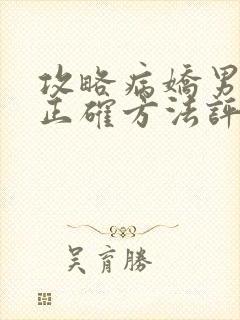 攻略病嬌男
正確方法評
吳育勝